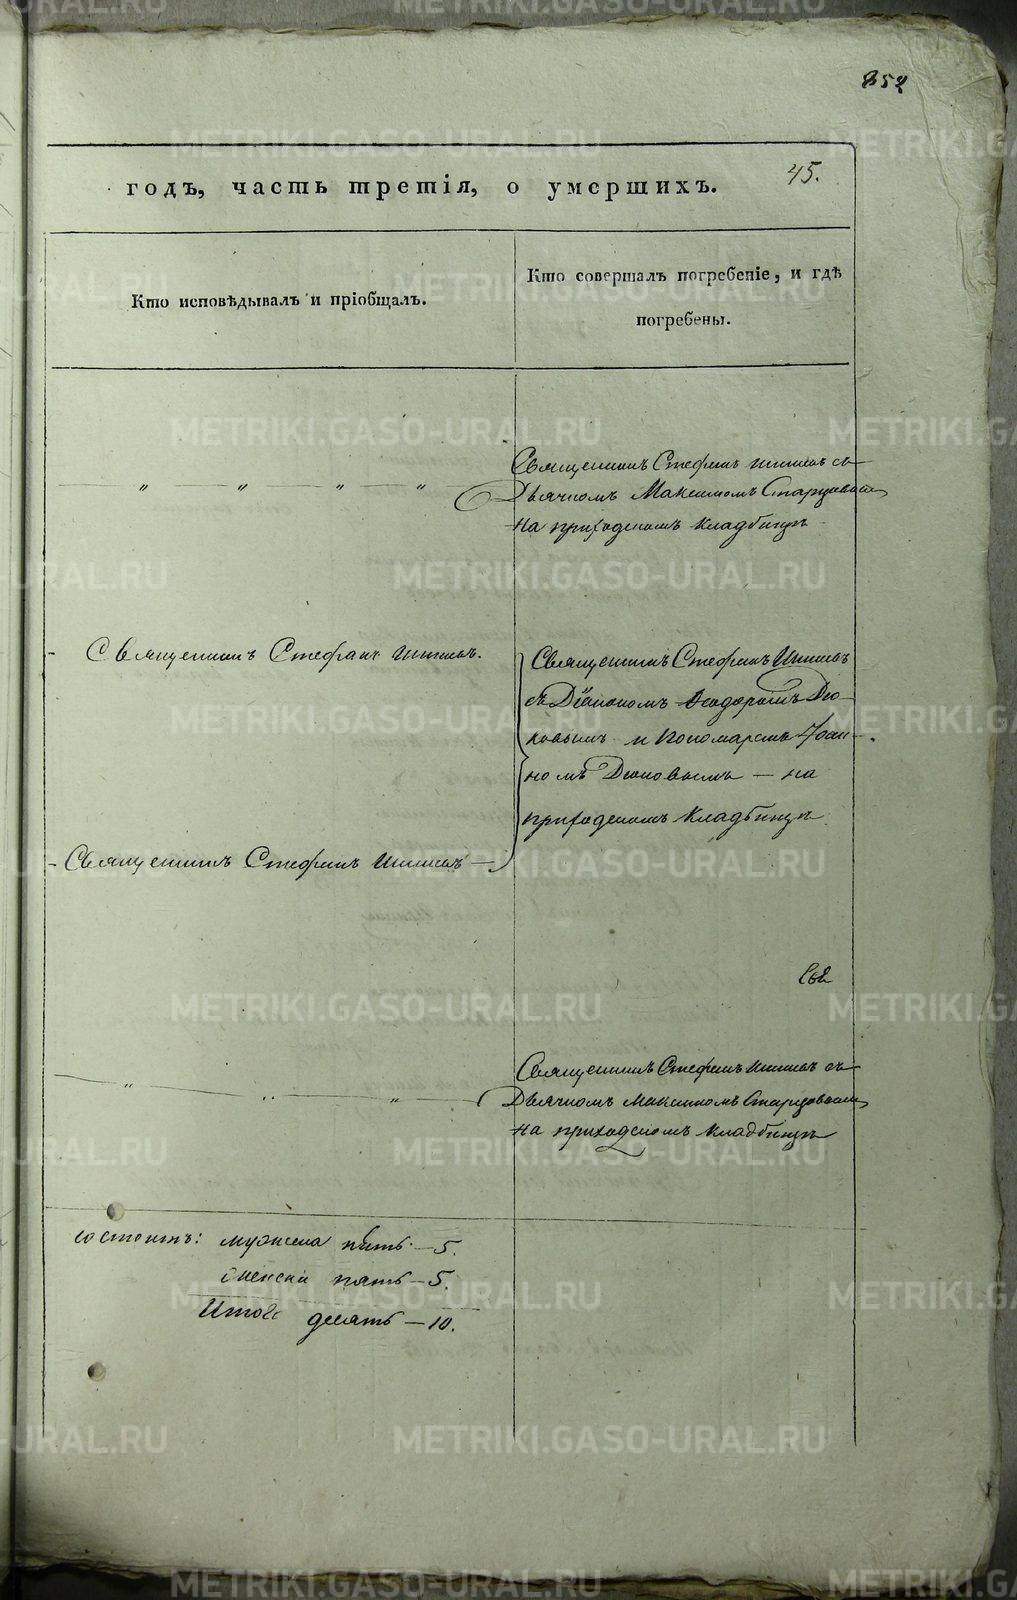 852
45.
годъ, часть третія, о умершихъ.
Кто исповѣдывалъ и пріобщалъ.
Кто совершалъ погребеніе, и гдѣ
погребены.
Священникъ Стефанъ Шишевъ съ
Дьячкомъ Максимомъ Старцовымъ
на приходскомъ кладбищѣ
- Священникъ Стефанъ
Священникъ Стефанъ
съ Діакономъ Ѳеодоромъ Дю-
ковымъ и Пономаремъ Іоан-
номъ Дюковымъ — на
приходскомъ кладбищѣ
- Священникъ Стефанъ
Священникъ Стефанъ съ
Дьячкомъ Максимомъ Старцовымъ
на приходскомъ кладбищѣ
состоитъ: мужеска пять — 5.
женска пять — 5.
Итого десять — 10.
METRIKI.GASO-URAL.RU